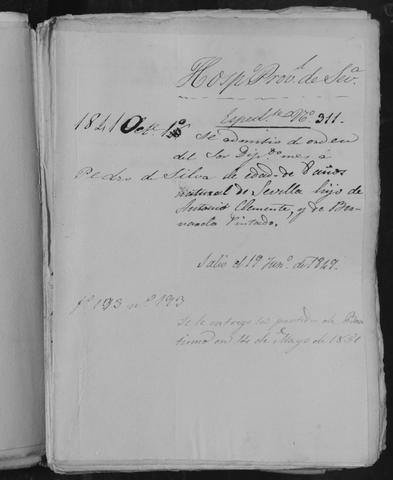 Hosp.º Prov.l de Sev.a
Exped.te Nº 311.
1841 Oct.e 1º Se admitio de orden
del Sor Dip.do mes á
Pedro de Silva de edad de 8 años
natural de Sevilla hijo de
Antonio Clemente, y de Ber-
narda Pintado.
Salió el 19 Jun.º de 1849.
fº 193 nº 193
Se le entregó la partida de Bau-
tismo en 14 de Mayo de 1851